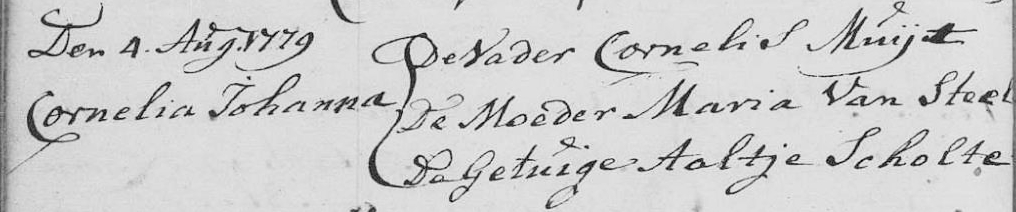 Den 4. Aug. 1779
Cornelia Johanna
De Vader Cornelis Muijt
De Moeder Maria Van Steel
De Getuige Aaltje Scholte